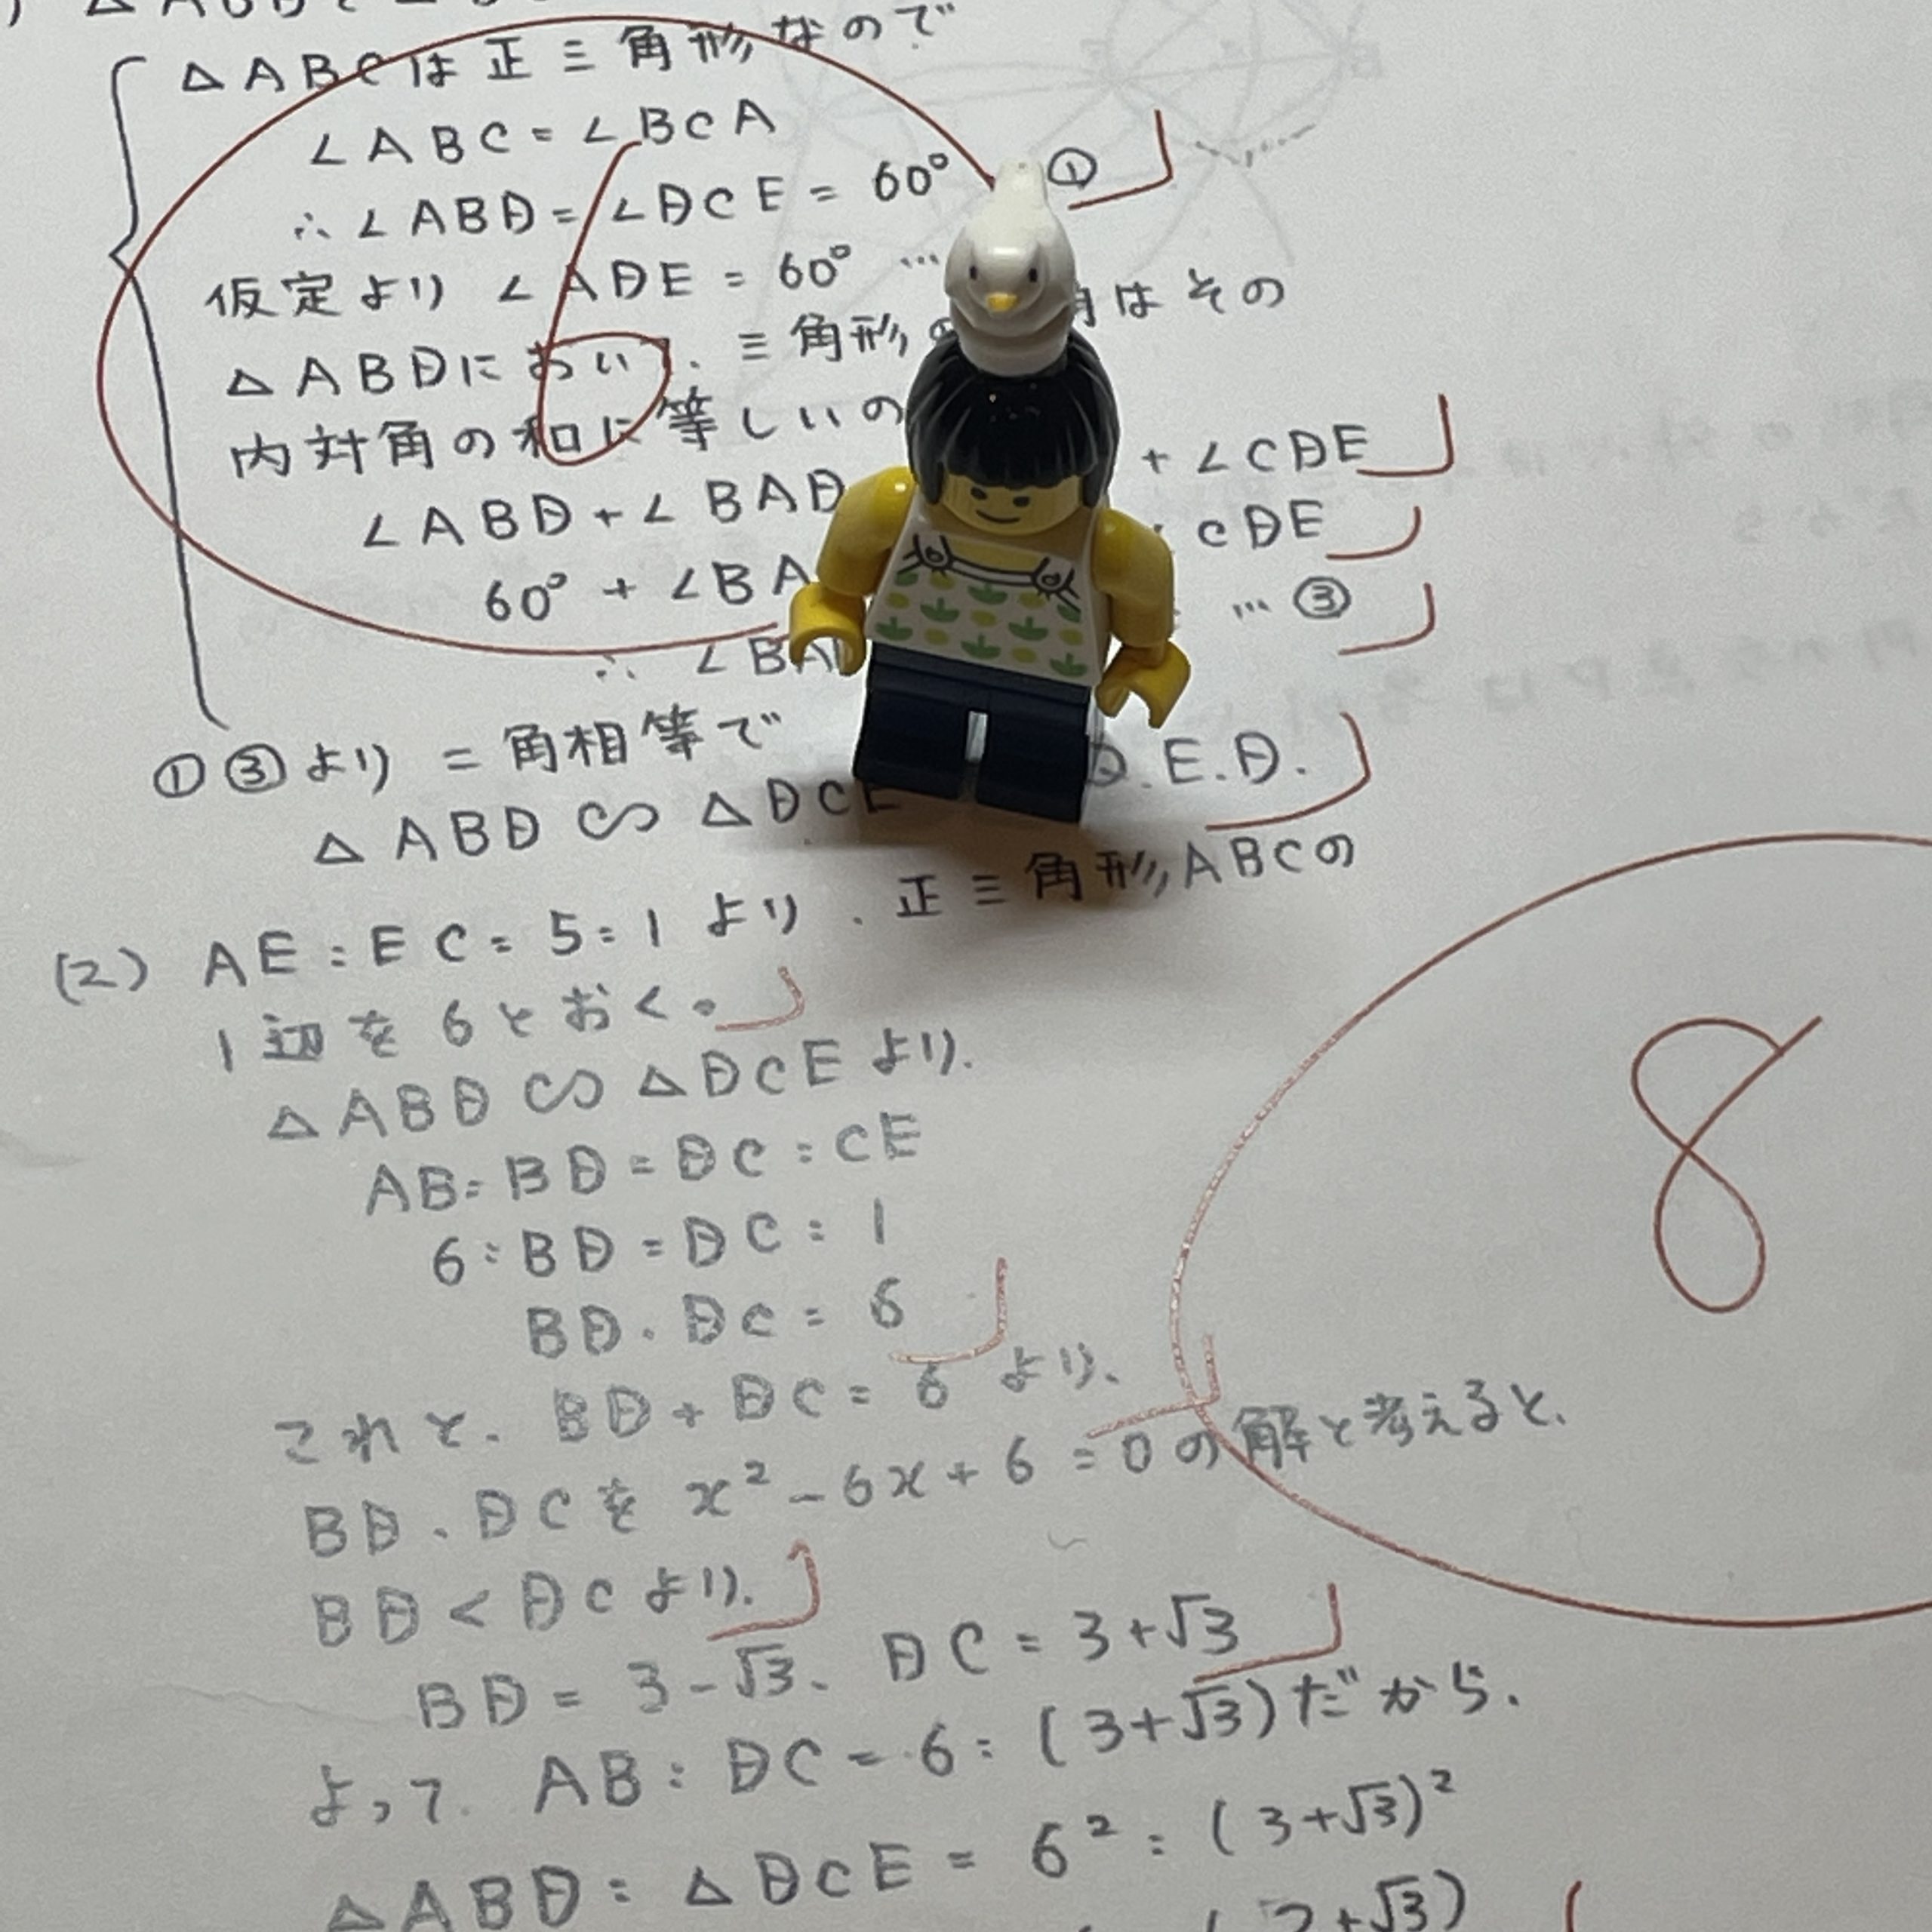 △ABCは正三角形なので
∠ABC=∠BCA
∴∠ABD=∠DCE=60° ①
仮定より ∠ADE=60° …
△ABDにおいて、三角形の 角はその
内対角の和に等しいの
∠ABD+∠BAD +∠CDE
60°+∠BA CDE
∴ ∠BAD … ③
①③より 二角相等で
△ABD∽△DCE Q.E.D.
(2) AE:EC=5:1より、正三角形ABCの
1辺を6とおく。
△ABD∽△DCEより、
AB:BD=DC:CE
6:BD=DC:1
BD・DC=6
これと、BD+DC=6より、
BD、DCを x²-6x+6=0の解と考えると、
BD<DCより、
BD=3-√3、DC=3+√3
よって、AB:DC=6:(3+√3)だから、
△ABD:△DCE=6²:(3+√3)²
+√3)
8